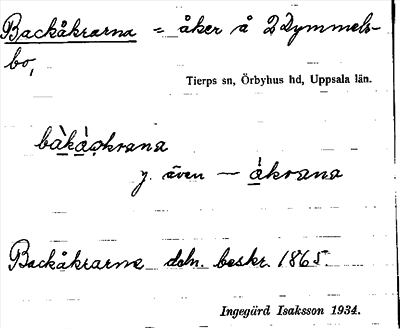 Backåkrarna = åker å 2 Dymmels-
bo,
Tierps sn, Örbyhus hd, Uppsala län.
bàkàokrana
y. även — àkrana
Backåkrarne doln. beskr. 1865.
Ingegärd Isaksson 1934.